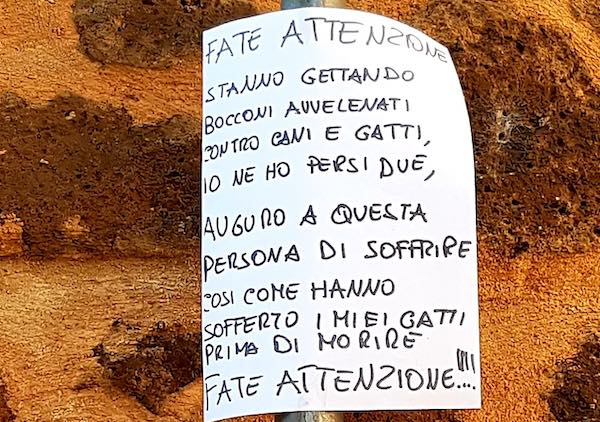 FATE ATTENZIONE
STANNO GETTANDO
BOCCONI AVVELENATI
CONTRO CANI E GATTI,
IO NE HO PERSI DUE,
AUGURO A QUESTA
PERSONA DI SOFFRIRE
COSI COME HANNO
SOFFERTO I MIEI GATTI
PRIMA DI MORIRE
FATE ATTENZIONE...!!!!